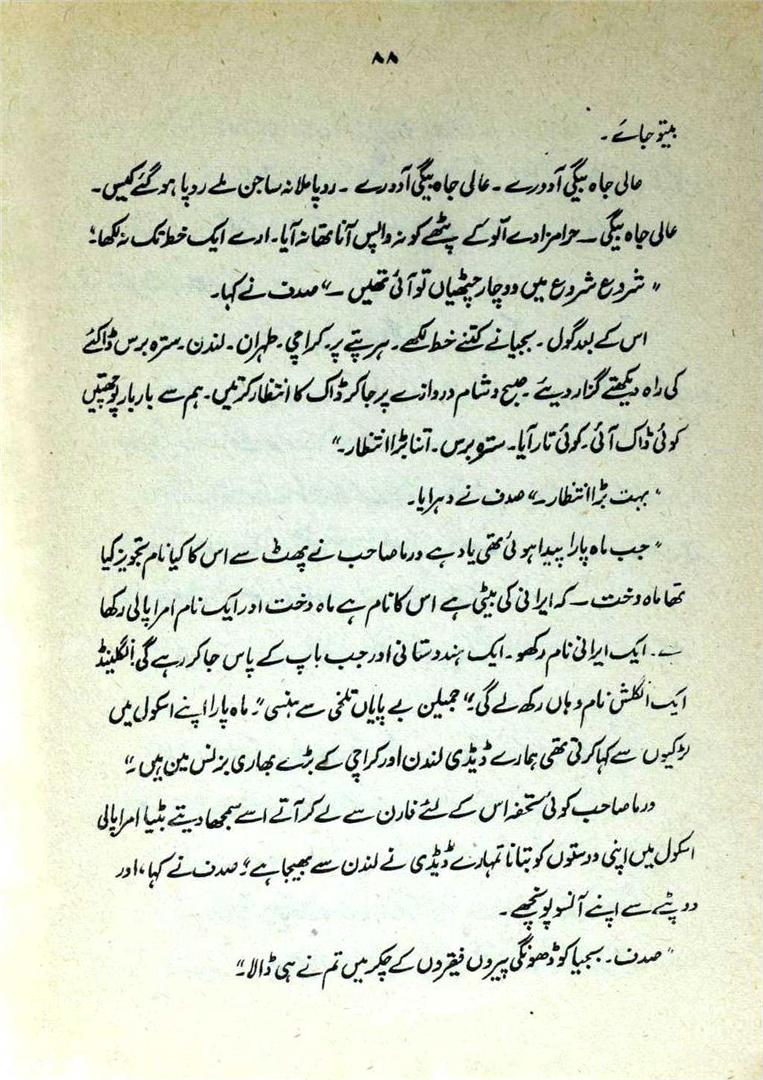 ۸۸
بیتو جائے ۔
عالی جاہ بیگی آدورے ۔ عالی جاہ بیگی آدورے ۔ روپا ملا نہ ساجن ملے روپا ہو گئے کیس ۔
عالی جاہ بیگی ۔ حرامزادے اُلو کے پٹھے کو نہ واپس آنا تھا نہ آیا ۔ ارے ایک خط تک نہ لکھا "
" شروع شروع میں دو چار چٹھیاں تو آئی تھیں ۔" صدف نے کہا ۔
اس کے بعد گول ۔ بجیا نے کتنے خط لکھے ۔ ہر پتے پر ۔ کراچی ۔ طہران ۔ لندن ۔ سترہ برس ڈاکئے
کی راہ دیکھتے گزار دیئے ۔ صبح و شام دروازے پر جا کر ڈاک کا انتظار کرتیں ۔ ہم سے بار بار پوچھتیں
کوئی ڈاک آئی ۔ کوئی تار آیا ۔ سترہ برس ۔ اتنا بڑا انتظار ۔"
" بہت بڑا انتظار ۔" صدف نے دہرایا ۔
" جب ماہ پارا پیدا ہوئی تھی یاد ہے ورما صاحب نے پھٹ سے اس کا کیا نام تجویز کیا
تھا ماہ دخت ۔ کہ ایرانی کی بیٹی ہے اس کا نام ہے ماہ دخت اور ایک نام امراپالی رکھا
ہے ۔ ایک ایرانی نام رکھو ۔ ایک ہندوستانی اور جب باپ کے پاس جا کر رہے گی انگلینڈ
ایک انگلش نام وہاں رکھ لے گی ۔" جمیلن بے پایاں تلخی سے ہنسی ۔" ماہ پارا اپنے اسکول میں
لڑکیوں سے کہا کرتی تھی ہمارے ڈیڈی لندن اور کراچی کے بڑے بھاری بزنس مین ہیں ۔"
ورما صاحب کوئی تحفہ اس کے لئے فارن سے لے کر آتے اسے سمجھا دیتے بٹیا امراپالی
اسکول میں اپنی دوستوں کو بتانا تمہارے ڈیڈی نے لندن سے بھیجا ہے " صدف نے کہا ، اور
دوپٹے سے اپنے آنسو پونچھے ۔
" صدف ۔ بجیا کو ڈھونگی پیروں فقیروں کے چکر میں تم نے ہی ڈالا ۔"